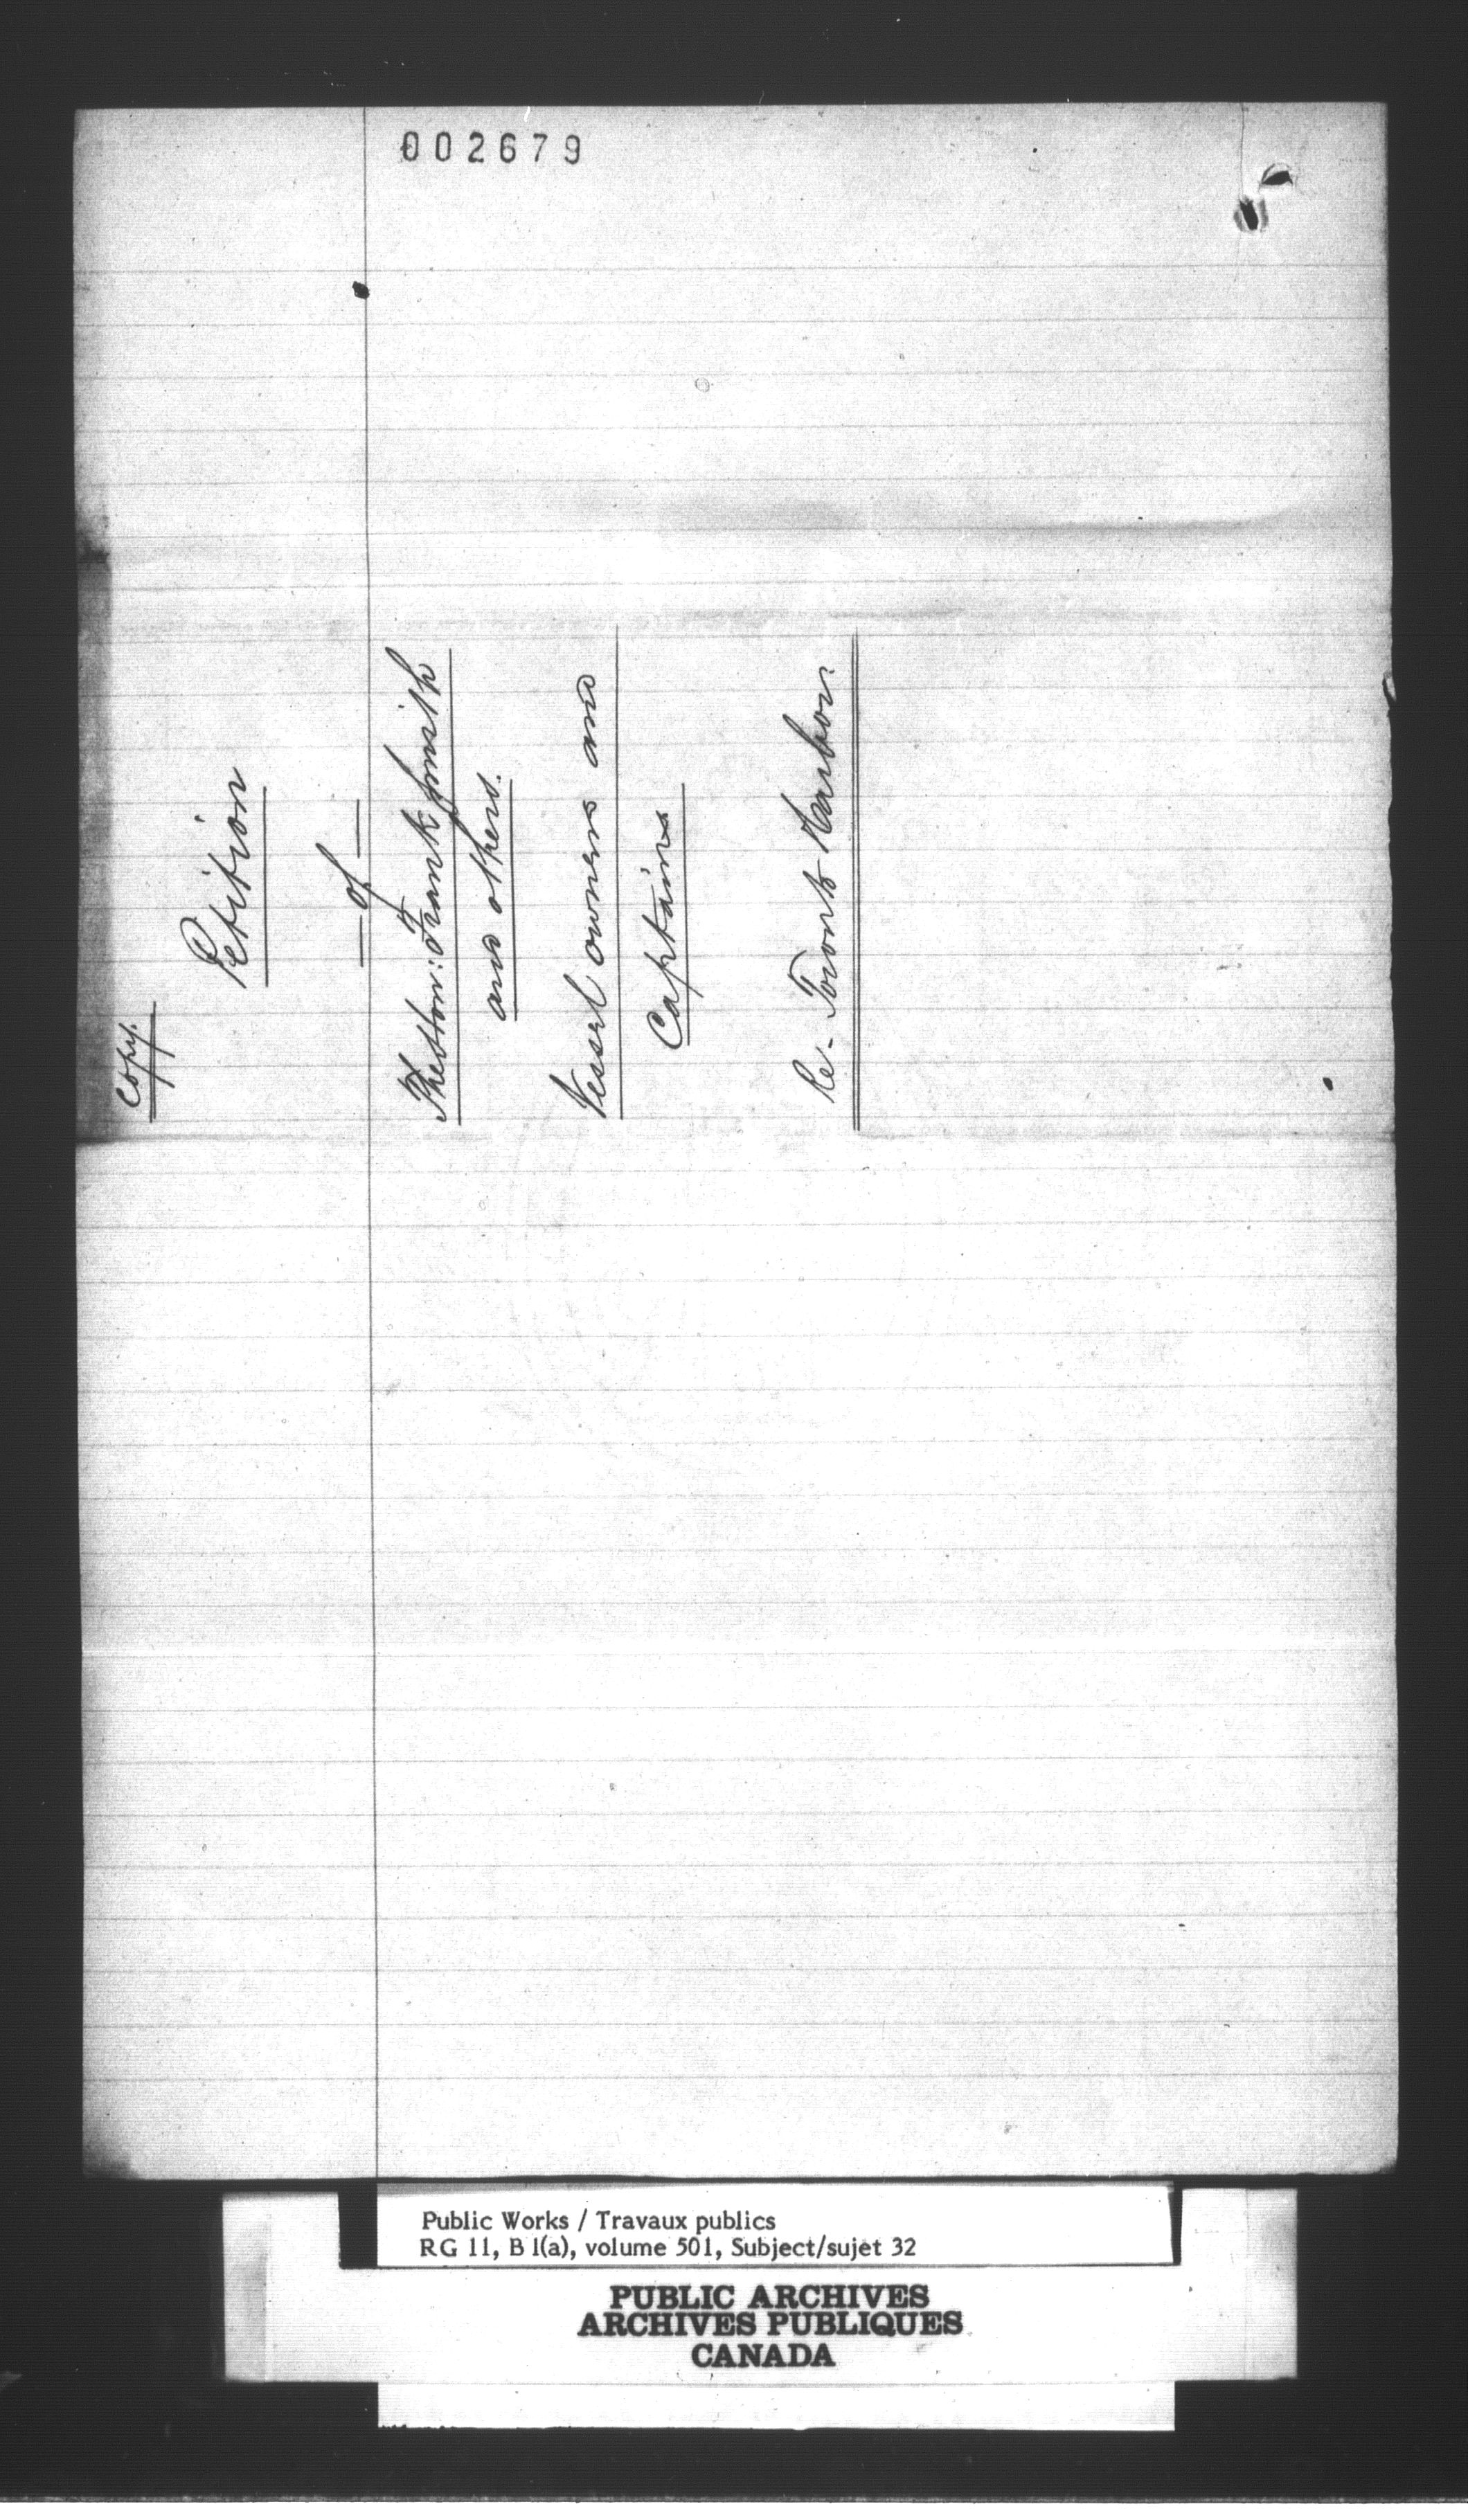 002679
Copy.
Petition
— of —
The Hon: Frank Smith
and others.
Vessel owners and
Captains
Re- Toronto Harbour.
Public Works / Travaux publics
RG 11, B 1(a), volume 501, Subject/sujet 32
PUBLIC ARCHIVES
ARCHIVES PUBLIQUES
CANADA